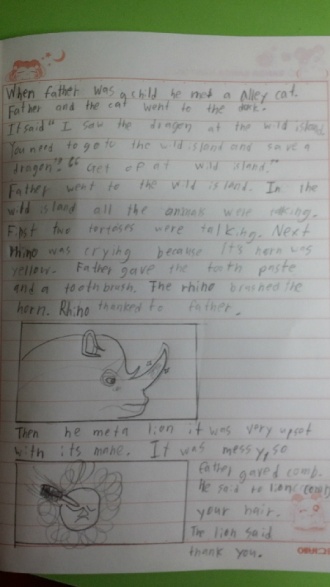 When father was a child he met a Alley cat.
Father and the cat went to the dock.
It said "I saw the dragon at the wild island.
You need to go to the wild island and save a
dragon." "Get of at wild island."
Father went to the wild island. In the
wild island all the animals were talking.
First two tortoises were talking. Next
Rhino was crying because It's horn was
yellow. Father gave the tooth paste
and a toothbrush. The rhino brushed the
horn. Rhino thanked to father.
Then he met a lion it was very upset
with its mane. It was messy, so
father gave d comb.
He said to lion comb
your hair.
The lion said
thank you.